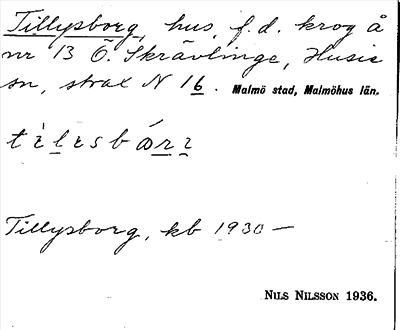 Tillysborg, hus, f.d. krog å
nr 13 Ö. Skrävlinge, Husie
sn, strax N 16. Malmö stad, Malmöhus län.
Tillysborg, kb 1930 —
NILS NILSSON 1936.